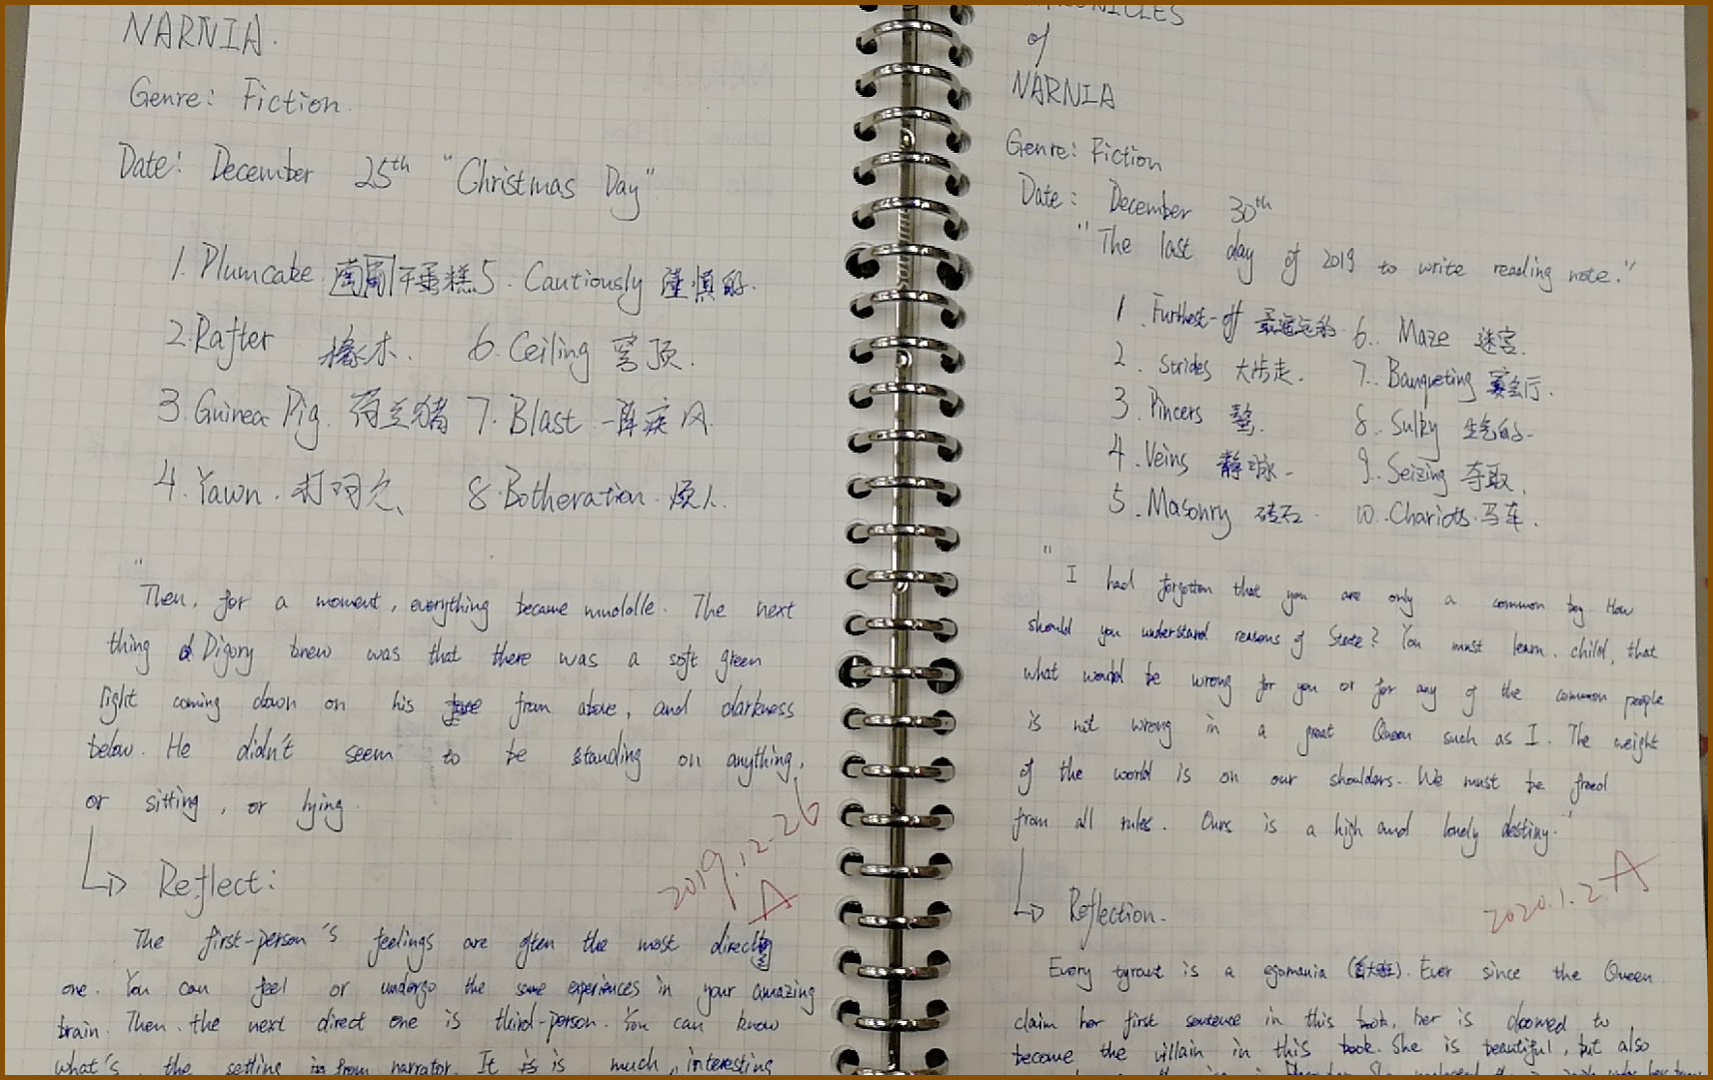 NARNIA.
Genre: Fiction.
Date: December 25th "Christmas Day"
1. Plumcake 葡萄干蛋糕 5. Cautiously 谨慎的.
2. Rafter 橡木. 6. Ceiling 穹顶.
3. Guinea Pig. 荷兰猪 7. Blast 一阵疾风.
4. Yawn. 打呵欠、 8. Botheration. 烦人.
"Then, for a moment, everything became muddle. The next
thing Digory knew was that there was a soft green
light coming down on his face from above, and darkness
below. He didn't seem to be standing on anything,
or sitting, or lying.
2019.12.26
A
Reflect:
The first-person's feelings are often the most directly
one. You can feel or undergo the same experiences in your amazing
brain. Then, the next direct one is third-person. You can know
what's, the setting is from narrator. It is is much, interesting
CHRONICLES
of
NARNIA
Genre: Fiction
Date: December 30th
"The last day of 2019 to write reading note."
1. Furthest-off 最遥远的. 6. Maze 迷宫.
2. Strides 大步走. 7. Banqueting 宴会厅.
3. Pincers 螯. 8. Sulky 生气的.
4. Veins 静脉. 9. Seizing 夺取.
5. Masonry 砖石. 10. Chariots. 马车.
"I had forgotten that you are only a common boy. How
should you understand reasons of State? You must learn, child, that
what would be wrong for you or for any of the common people
is not wrong in a great Queen such as I. The weight
of the world is on our shoulders. We must be freed
from all rules. Ours is a high and lonely destiny."
2020.1.2 A
Reflection.
Every tyrant is a egomania (自大狂). Ever since the Queen
claim her first sentence in this book, her is doomed to
become the villain in this book. She is beautiful, but also